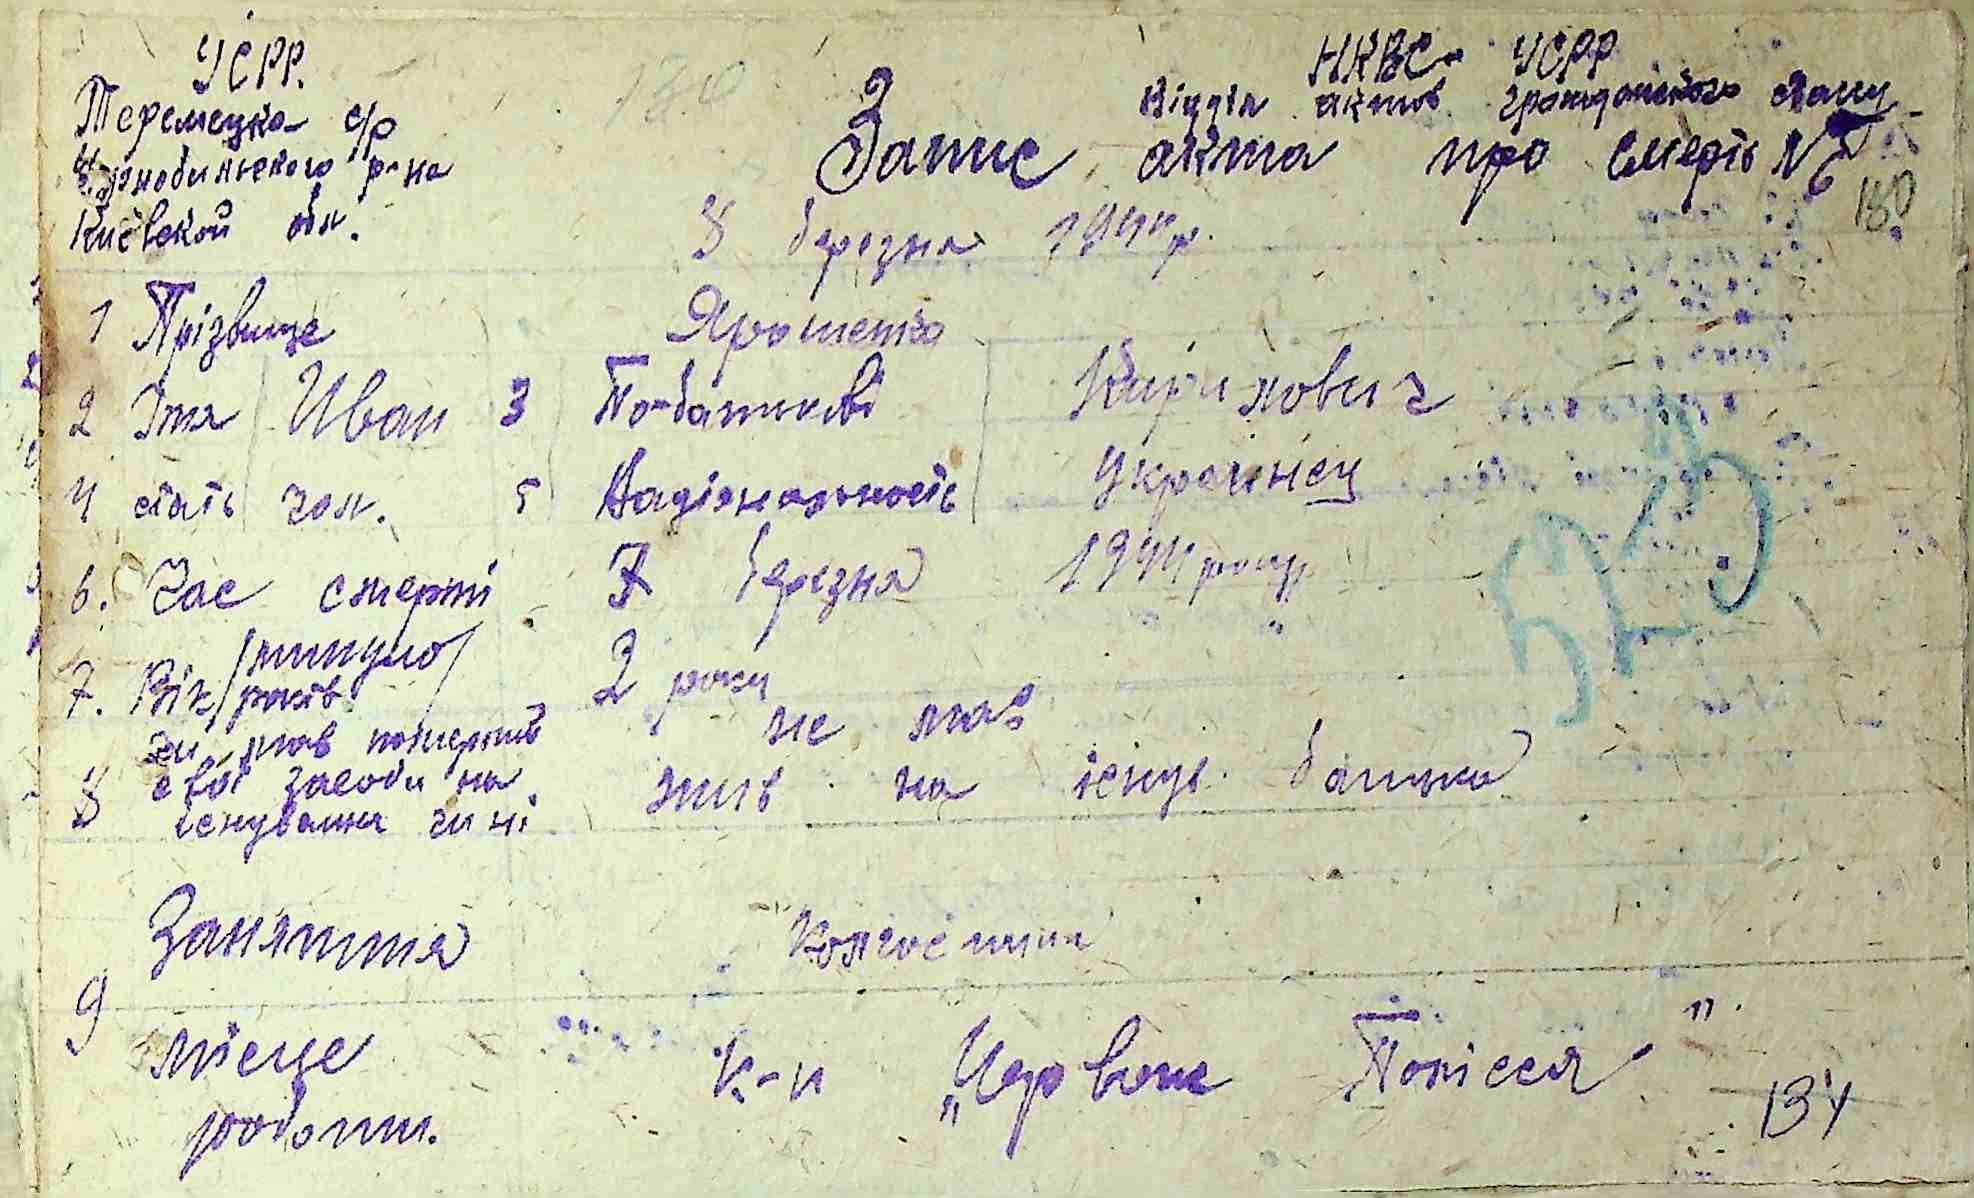 УСРР.
Теремецка с/р
Чорнобильского р-на
Киевской обл.
НКВС УСРР
Відділ актов гражданского стану
Запис акта про смерть №
180
8 березня 1944 р.
1 Прізвище Ярошенко
2 Імя Иван 3 По-батькові Кирилович
4 стать чол. 5 Національность Українец
6. Час смерті 7 березня 1944 року
7. Вік /минуло років/ 2 роки
8 чи мав померший свої засоби на існування чи ні
не мав
жив на існув. батька
523
9 Заняття Колгоспник
місце роботи. к-п „Червоне Полісся"
134